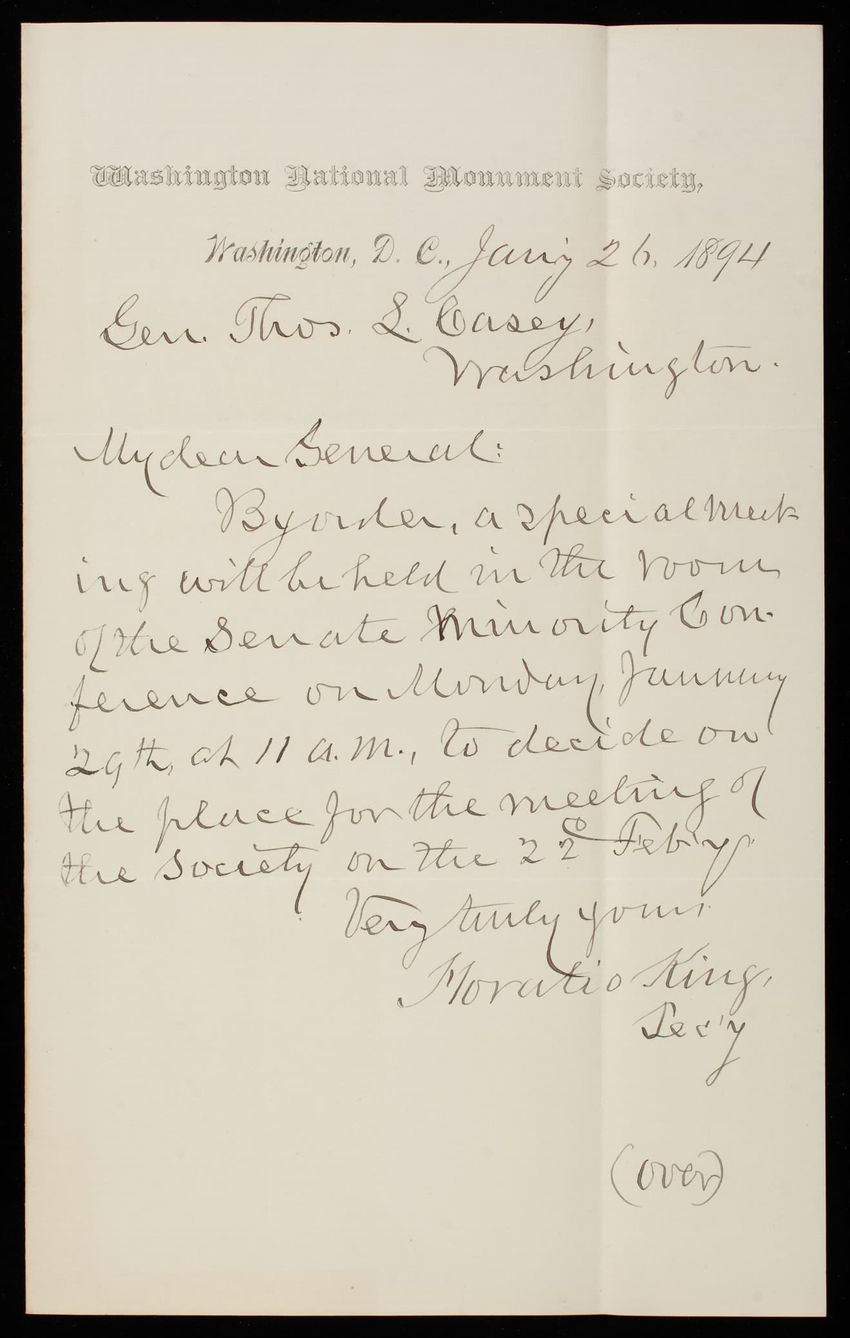 Washington National Monument Society,
Washington, D. C., Jan'y 26, 1894
Gen. Thos. L. Casey,
Washington.
My dear General:
By order, a special meet-
ing will be held in the room
of the Senate Minority Con-
ference on Monday, January
29th, at 11 a.m., to decide on
the place for the meeting of
the Society on the 22d Feb'y.
Very truly yours
Horatio King,
Sec'y
(over)